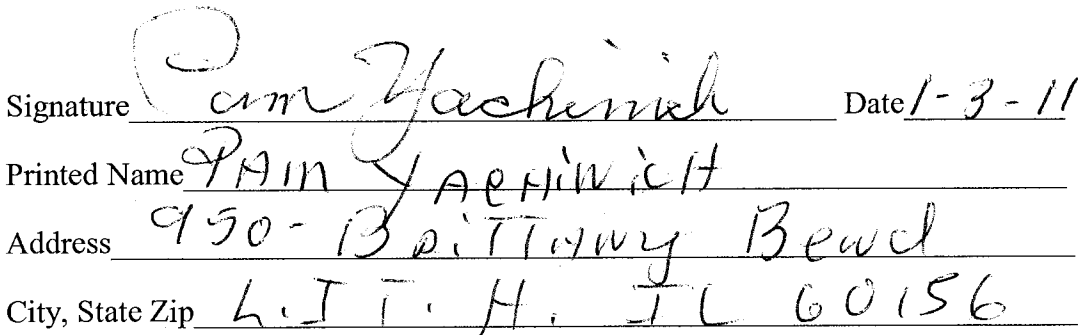 Signature Pam Yachinich Date 1-3-11
Printed Name PAM YACHINICH
Address 950- BRiTTANY Bend
City, State Zip L.I T. H. IL 60156